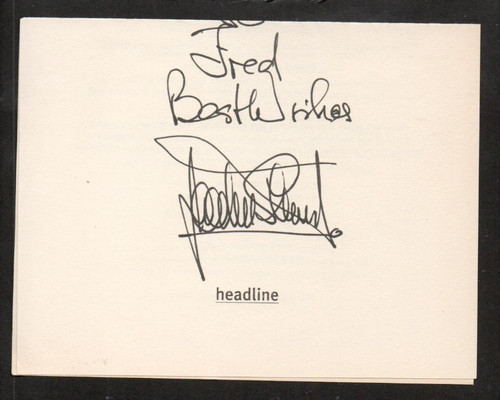 Fred
Best Wishes
headline